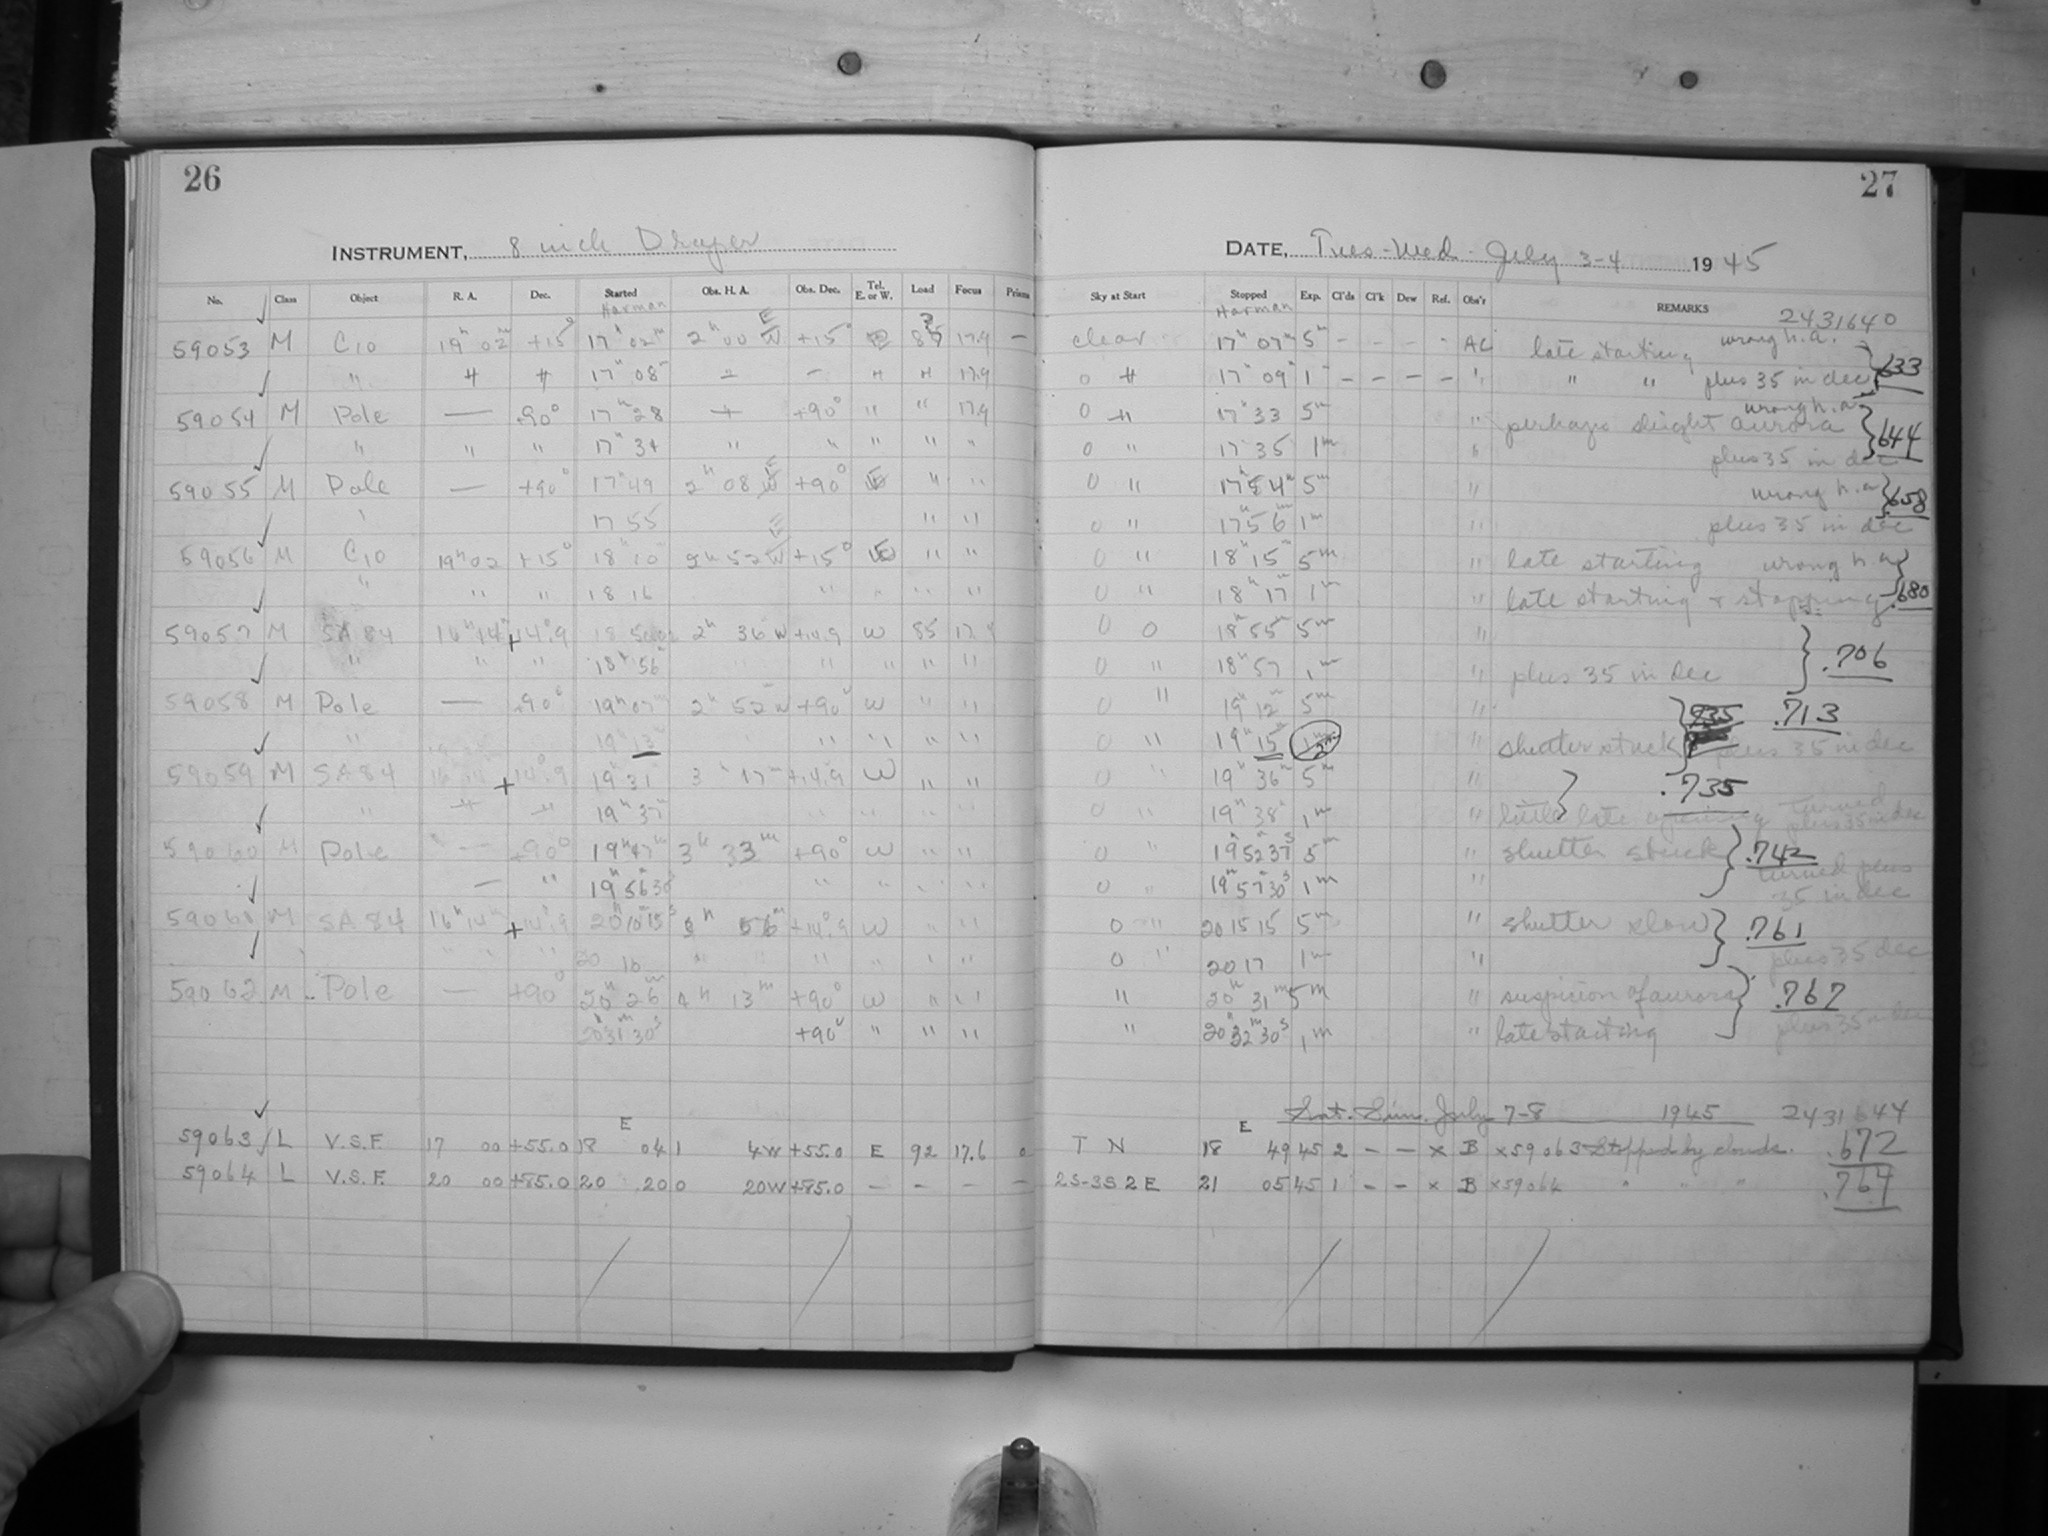 26
INSTRUMENT, 8 inch Draper
No. Class Object R. A. Dec. Started Obs. H. A. Obs. Dec. Tel. E. or W. Load Focus Prisms
Harman
59053 M C10 19h 02m +15° 17h 02m 2h 00 E +15° 17.9 —
" 17 08 17.9
59054 M Pole — +90° 17h 28 +90° " " 17.9
" " " 17h 34 " " " " "
59055 M Pole — +90° 17h 49 2h 08 E +90° E " "
17 55 " "
59056 M C10 19h 02 +15° 18h 10 52 E +15° E " "
" " " 18 16 " " " "
59057 M SA 84 16h 14m +14°.9 2h 36 W +14.9 W 85 17.9
" " " 18h 56 " " " "
59058 M Pole — +90° 19h 07m 2h 52 W +90° W " "
" 19h 13 " " " "
59059 M SA 84 +14°.9 19h 31 3h 17m +14.9 W " "
" 19h 37
59060 M Pole — +90° 19h 47m 3h 33m +90° W " "
— " 19h 56 30s " " " "
M SA 84 16h 14m +14°.9 20h 10m 15s 56m +14°.9 W " "
20 16
59062 M Pole — +90° 20h 26m 4h 13m +90° W " "
20h 31m 30s +90° " " "
59063 L V.S.F. 17 00 +55.0 18 E 04 1 4W +55.0 E 92 17.6 0
59064 L V.S.F. 20 00 +85.0 20 20 0 20W +85.0 — — — —
27
DATE, Tues-Wed. July 3-4 1945
Sky at Start Stopped Exp. Cl'ds Cl'k Dew Ref. Obs'r REMARKS
Harman 2431640
clear 17h 07m 5m - - - - AC late starting wrong h.a.
0 17h 09 1 — — — — " " " plus 35 in dec } .633
0 17h 33 5m " perhaps slight aurora wrong h.a.
0 " 17 35 1m " plus 35 in dec } .644
0 " 17h 54m 5m " wrong h.a
0 " 17h 56m 1m " plus 35 in dec } .658
0 " 18h 15m 5m " late starting wrong h.a
0 " 18h 17m 1m " late starting & stopping } .680
0 0 18h 55m 5m "
0 " 18h 57 1m " plus 35 in dec } .706
0 " 19h 12m 5m " .713
0 " 19h 15 2m " shutter stuck plus 35 in dec
0 " 19h 36m 5m " .735
0 " 19h 38 1m " little late opening turned plus 35 in dec
0 " 19h 52m 37s 5m " shutter stuck } .742
0 " 19h 57m 30s 1m " turned plus 35 in dec
0 " 20 15 15 5m " shutter slow } .761
0 " 20 17 1m " plus 35 dec
" 20h 31m 5m " suspicion of aurora } .767
" 20h 32m 30s 1m " late starting plus 35 in dec
Sat. Sun. July 7-8 1945 2431644
T N 18 E 49 45 2 — — x B x59063 Stopped by clouds. .672
2S-3S 2 E 21 05 45 1 — — x B x59064 " " " .764